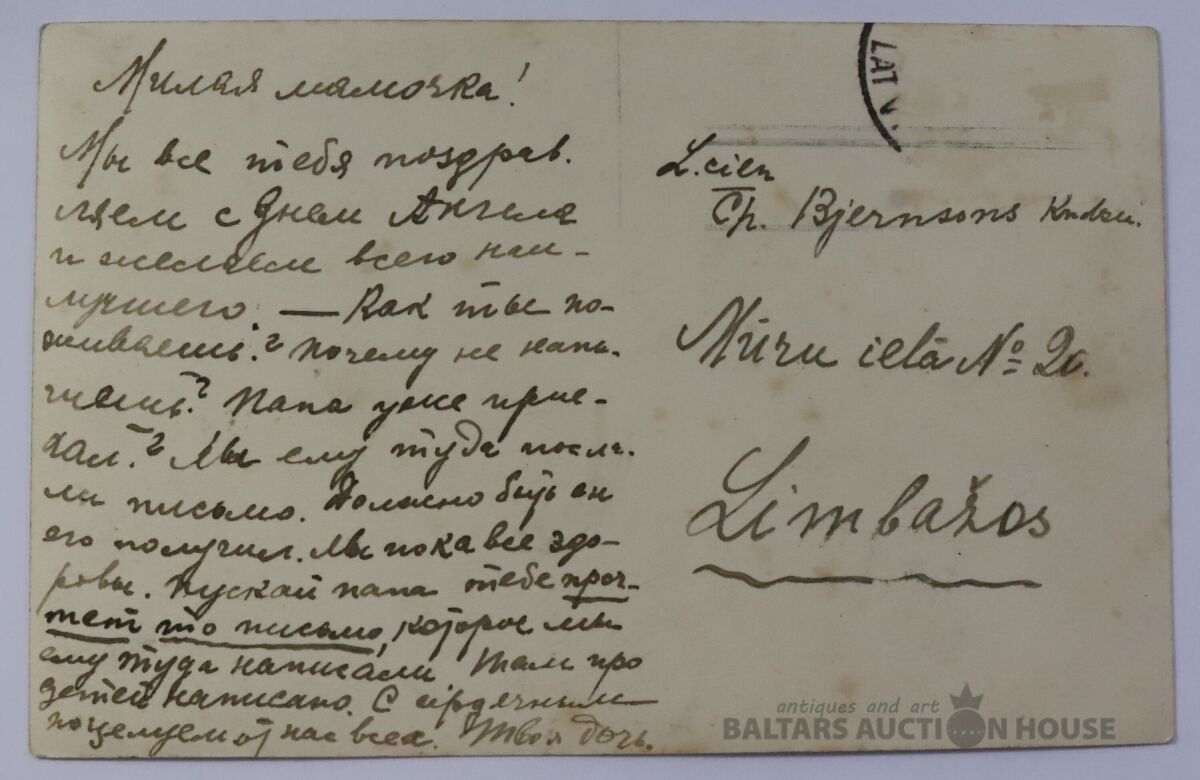 Милая мамочка!
Мы все тебя поздрав.
ляем с Днем Ангела
и желаем всего наи-
лучшего. — Как ты по-
живаешь? Почему не напи.
шешь? Папа уже прие-
хал? Мы ему туда посла.
ли письмо. Должно быть он
его получил. Мы пока все здо-
ровы. Пускай папа тебе проч-
тет то письмо, которое мы
ему туда написали Там про
детей написано. С сердечным
поцелуем от нас всех. Твоя дочь.
LAT
L. cien
Bjernsons
Mūru ielā № 20.
Limbažos
antiques and art
BALTARS AUCTION HOUSE